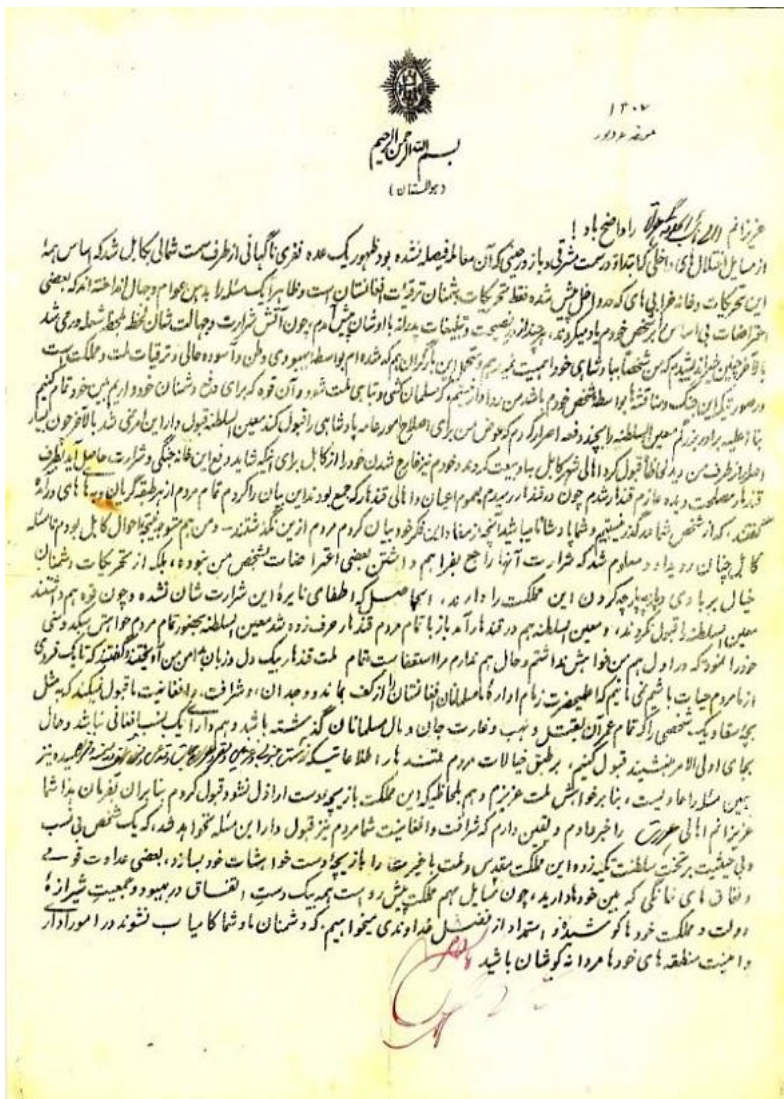 ۱۳۰۷
بسم الله الرحمن الرحیم
(هوالمستعان)
عزیزانم را واضح باد!
از مسایل انقلال های داخلی که ابتدا در سمت مشرقی و باز در حینی که آن معامله فیصله نشده بود ظهور یک عده نفری ناگهانی از طرف سمت شمالی بکابل شد که اساس همهٔ
این تحریکات و خانه خرابی های که در داخل پیش شده فقط تحریکات دشمنان ترقیات افغانستان است و ظاهرا یک مسئله را بدهن عوام و جهال انداخته اند که بعضی
اعتراضات بی اساس بر شخص خودم یاد میکردند، هر چند از در نصیحت و تبلیغات پدرانه با اوشان پیش آمدم، چون آتش شرارت و جهالت شان لحظه بلحظه شعله ور می شد
بالاخره چنین خیر اندیشیدم که من شخصاً بپادشاهی خود اهمیت نمیدهم و متحمل این بار گران هم که شده ام بواسطه بهبودی وطن و آسوده حالی و ترقیات ملت و مملکت است
در صورتیکه این جنگ و مناقشه ها بواسطه شخص خودم باشد من روادار نیستم که مسلمان کشی و تباهی ملت شود و آن قوه که برای دفع دشمنان خود داریم بین خود تمام کنیم
بناءً علیه برادر بزرگم معین السلطنه را بچند دفعه اصرار کردم که عوض من برای اصلاح امور عامه پادشاهی را قبول کند معین السلطنه قبول دار این امر نمی شد بالاخره چون بسیار
اصرار از طرف من دید لحاظاً قبول کرد اهالی شهر کابل باو بیعت کردند و خودم نیز خارج شدن خود را از کابل برای اینکه شاید دفع این خانه جنگی و شرارت حاصل آید بطرف
قندهار مصلحت دیده عازم قندهار شدم چون در قندهار رسیدم بعموم اعیان و اهالی قندهار که جمع بودند این بیان را کردم تمام مردم از هر طبقه گریان و به های های در آمدهٔ
گفتند، که از شخص شما در گذر نیستیم و شما پادشاه ما میباشید آنچه از مفاد این فکر خود بیان کردم مردم ازین نگذشتند ـ و من هم متوجه نتیجهٔ احوال کابل بودم تا مسئله
کابل چنان رویداد و معلوم شد که شرارت آنها راجع بفراهم داشتن بعضی اعتراضات بشخص من نبوده، بلکه از تحریکات دشمنان
خیال بربادی و پارچه پارچه کردن این مملکت را دارند، الحاصل که اطفای نایرهٔ این شرارت شان نشده و چون قوه هم داشتند
معین السلطنه را قبول نکردند، و معین السلطنه هم در قندهار آمد باز با تمام مردم قندهار حرف زده شد معین السلطنه بحضور تمام مردم خواهش سبکدوشی
خود را نمود که در اول هم من خواهش نداشتم و حال هم ندارم مرا استعفا است تمام ملت قندهار بیک دل و زبان بدامن من آویختند و گفتند که تا یک فردی
از ما مردم حیات باشیم نمی مانیم که اعلیحضرت زمام ادارهٔ ما مسلمانان افغانستان را از کف بماند و وجدان، و شرافت و افغانیت ما قبول نمیکند که مثل
بچهٔ سقا و یک شخصی را که تمام عمر آن بقتل و نهب و غارت جان و مال مسلمانان گذشته باشد و هم دارای یک نسب افغانی نباشد و حال
بجای اولی الامر بنشیند قبول کنیم، بر طبق خیالات مردم ملت قندهار اطلاعاتیکه از سمت رسیده نیز
بهمین مسئله را عاید است، بنا بر خواهش ملت عزیزم و هم بلحاظیکه این مملکت بازیچهٔ دست اراذل نشود قبول کردم بنابران بفرمان هذا شما
عزیزانم اهالی را خبر دادم و یقین دارم که شرافت و افغانیت شما مردم نیز قبول دار این مسئله نخواهد شد، که یک شخص بی نسب
و بی حیثیت بر تخت سلطنت تکیه زده این مملکت مقدس و ملت با غیرت را بازیچهٔ دست خواهشات خود بسازد، بعضی عداوت قومی
و نفاق های خانگی که بین خودها دارید، چون مسایل مهم مملکت پیش رو است همه بیک دست اتفاق در بهبود و جمعیت شیرازهٔ
دولت و مملکت خودها کوشیده و استمداد از فضل خداوندی میخواهیم، که دشمنان ما و شما کامیاب نشوند در امور اداری
و امنیت منطقه های خودها مردانه کوشان باشید